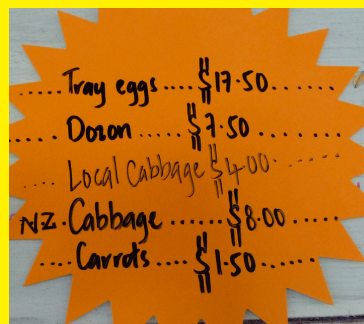 ..... Tray eggs .... $17.50.......
.... Dozon ..... $7.50 ......
.... Local Cabbage $4.00.......
NZ. Cabbage ...... $8.00 .....
.... Carrots .... $1.50......